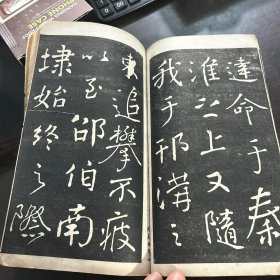 達命于秦
淮之上又隨
我于邗溝之
東追攀不疲
以至邵伯南
埭始終之際
PHONE CASE